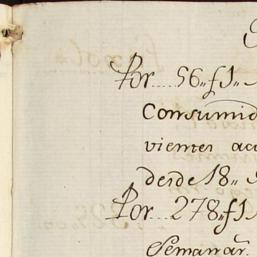 Por 56„ f1„
Consumid
vientes ac
desde 18„
Por 278„ f1
Semanar.